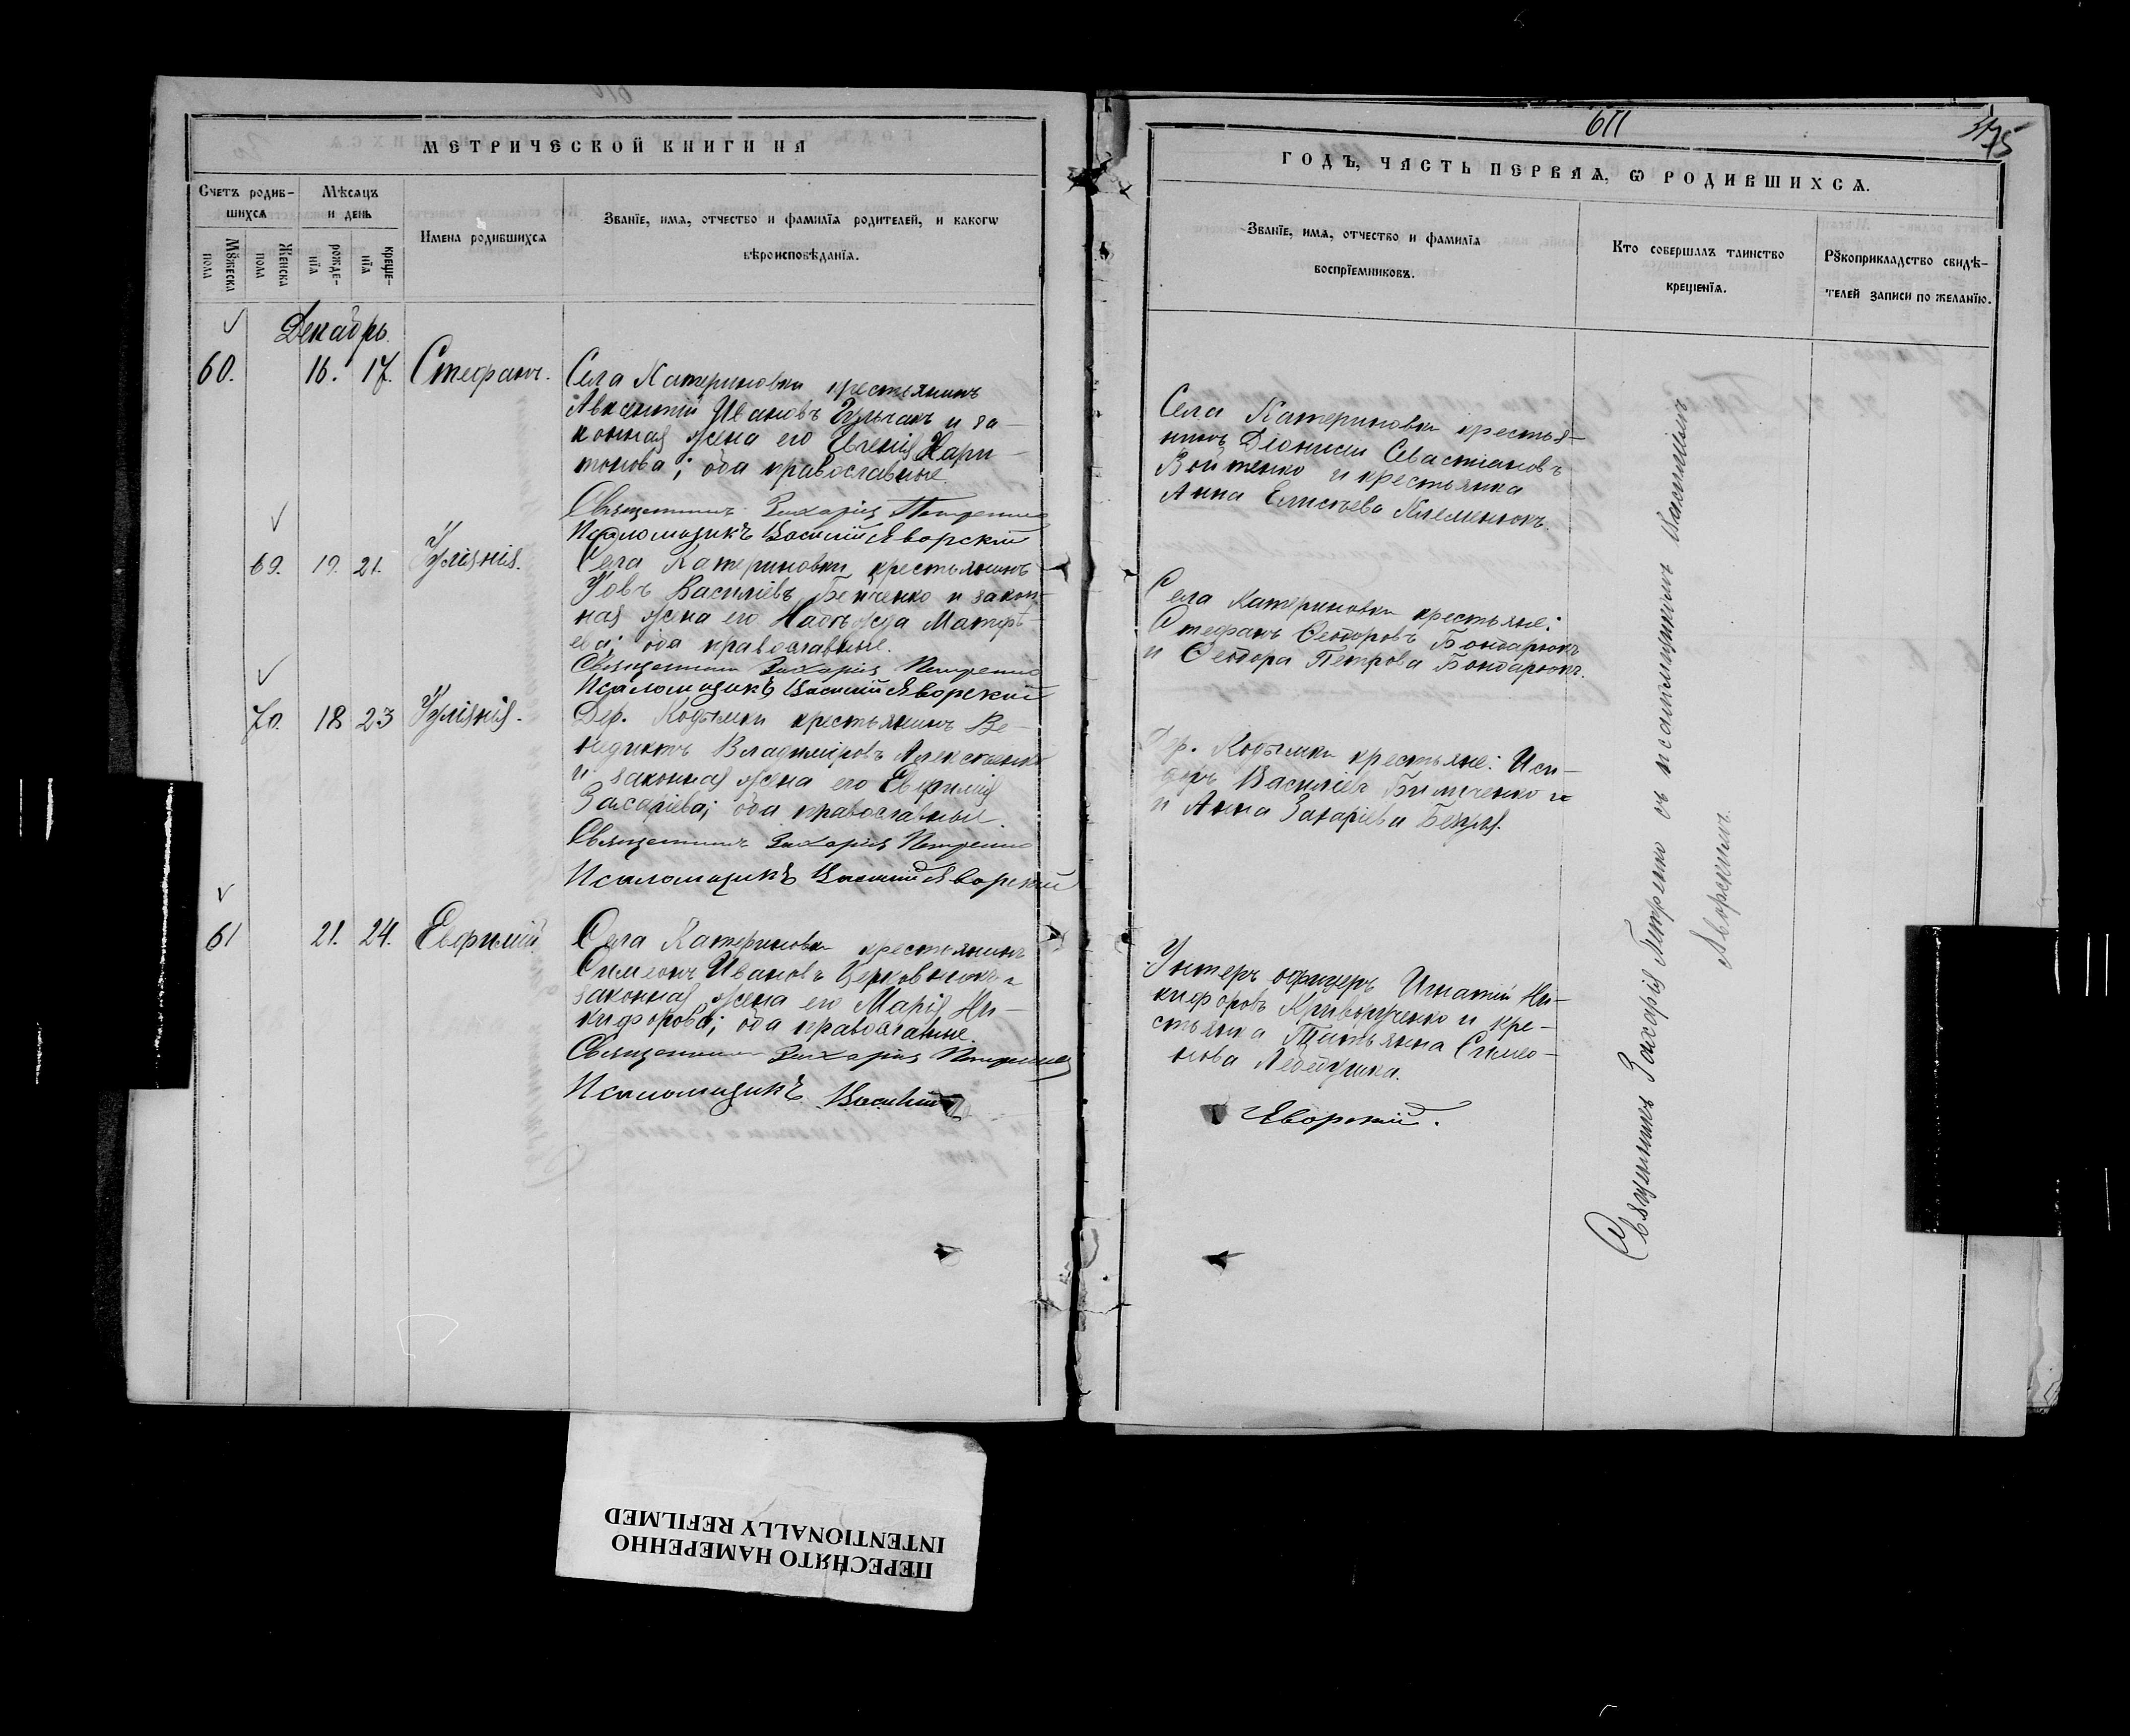 МЕТРИЧЕСКОЙ КНИГИ НА
Счетъ родив-
шихся
Мѣсяцъ
и день
Имена родившихся
Званїе, имя, отчество и фамилїя родителей, и какогѡ
вѣроисповѣданїя.
Мꙋжеска
пола
Женска
пола
рожде-
нїя
креще-
нїя
Декабрь.
60. 16. 17. Стефанъ.
Села Катериновки крестьянинъ
Авксентій Ивановъ и за-
конная жена его Евгенія Хари-
тонова; оба православные.
Священникъ Захарія Петренко
Псаломщикъ Василій Яворскій
69. 19. 21. Уліянія.
Села Катериновки крестьянинъ
Іовъ Василіевъ и закон-
ная жена его Надежда Матѳѣ-
ева; оба православные.
Священникъ Захарія Петренко
Псаломщикъ Василій Яворскій
70. 18 23 Уліянія.
Дер. Кобылки крестьянинъ Ве-
недиктъ Владиміровъ Алексѣенко
и законная жена его Евфимія
Захаріева; оба православные.
Священникъ Захарія Петренко
Псаломщикъ Василій Яворскій
61 21. 24. Евфимій.
Села Катериновки крестьянинъ
Симеонъ Ивановъ Церковнюкъ и
законная жена его Марія Ни-
кифорова; оба православные.
Священникъ Захарія Петренко
Псаломщикъ Василій
611
375
ГОДЪ, ЧАСТЬ ПЕРВАЯ, Ѡ РОДИВШИХСЯ.
Званїе, имя, отчество и фамилїя
воспрїемниковъ.
Кто совершалъ таинство
крещенїя.
Рꙋкоприкладство свидѣ-
телей записи по желанїю.
Села Катериновки крестья-
нинъ Діонисій Севастіановъ
Войтенко и крестьянка
Анна Елисѣева Клеменюкъ.
Села Катериновки крестьяне:
Стефанъ Ѳеодоровъ Бондарюкъ
и Ѳеодора Петрова Бондарюкъ.
Дер. Кобылки крестьяне: Иси-
доръ Василіевъ и
и Анна Захаріева
Унтеръ офицеръ Игнатій Ни-
кифоровъ Криворученко и кре-
стьянка Татьяна Симео-
нова
Яворскій.
Священникъ Захарія Петренко съ псаломщикомъ Василіемъ
Яворскимъ.
ПЕРЕСНЯТО НАМЕРЕННО
INTENTIONALLY REFILMED